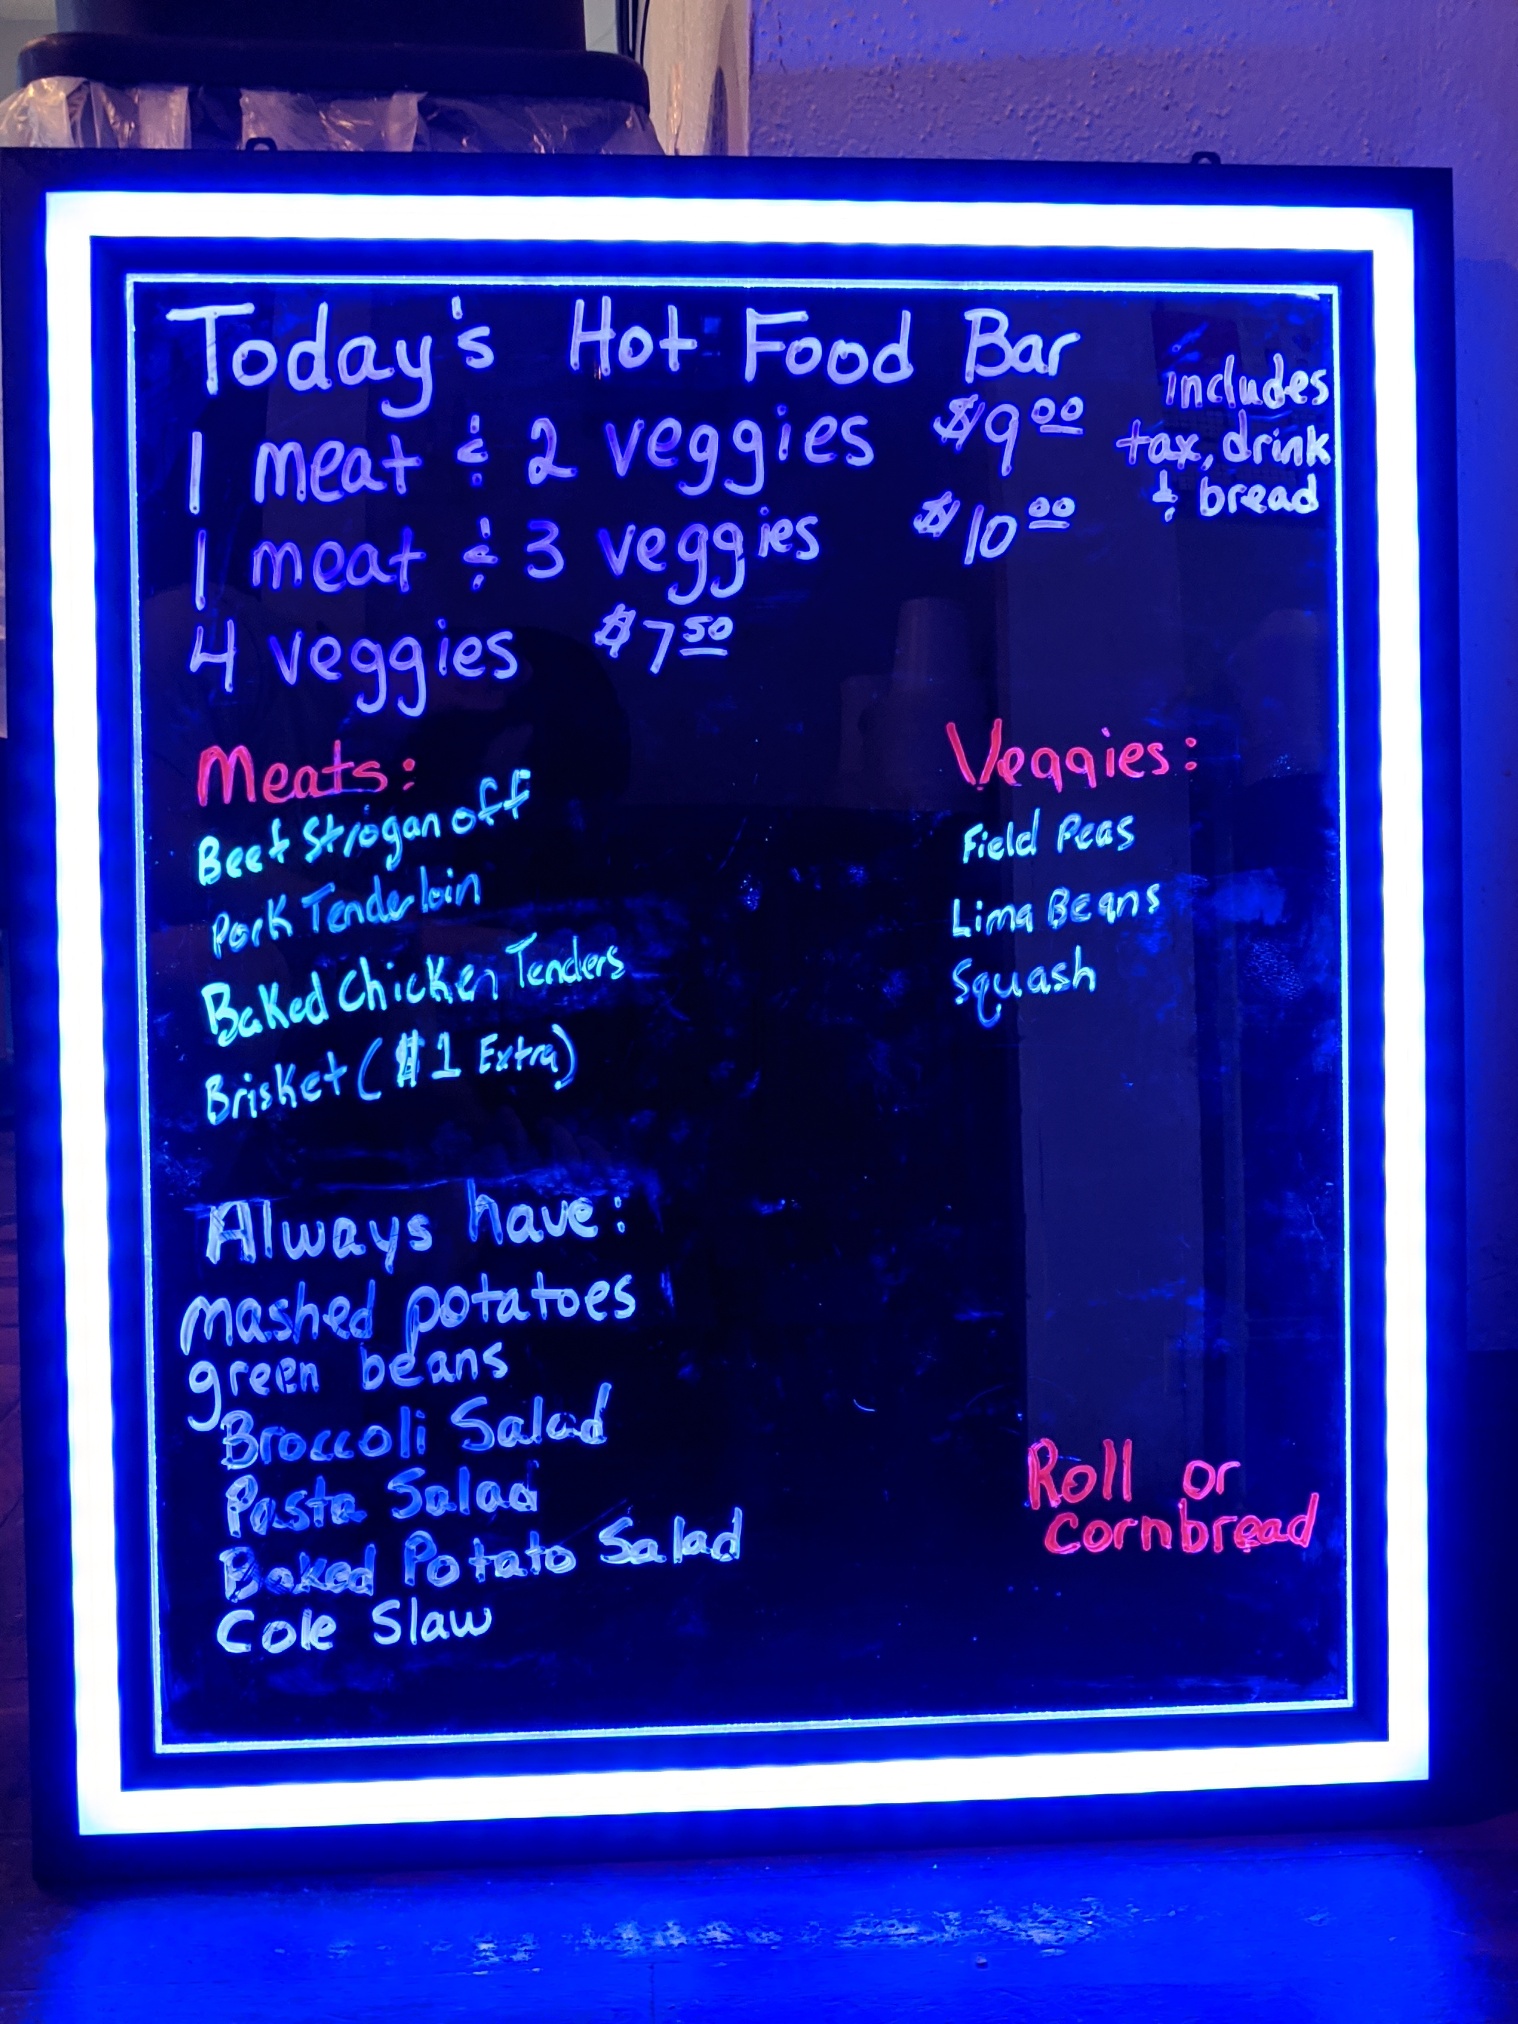 Today's Hot Food Bar
1 meat & 2 veggies $9.00
1 meat & 3 veggies $10.00
4 veggies $7.50
includes
tax, drink
& bread
Meats:
Beef Stroganoff
Pork Tenderloin
Baked Chicken Tenders
Brisket ($1 Extra)
Veggies:
Field Peas
Lima Beans
Squash
Always have:
mashed potatoes
green beans
Broccoli Salad
Pasta Salad
Baked Potato Salad
Cole Slaw
Roll or
cornbread